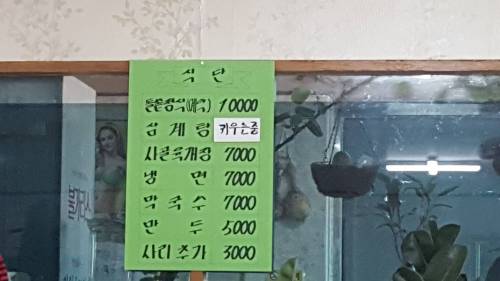 식 단
튼튼정식(예약) 10000
삼 계 탕 키우는중
시골육개장 7000
냉 면 7000
막 국 수 7000
만 두 5000
사리 추가 3000